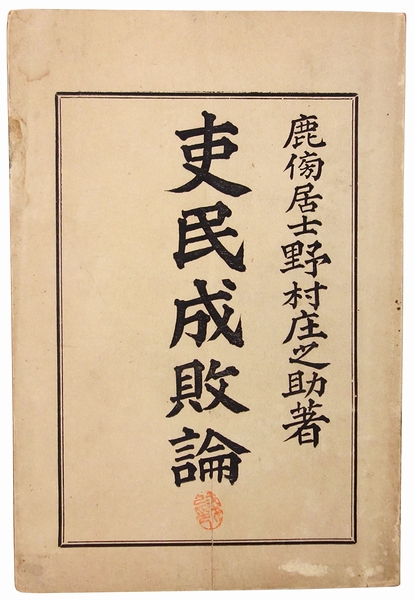 鹿傍居士野村庄之助著
吏民成敗論